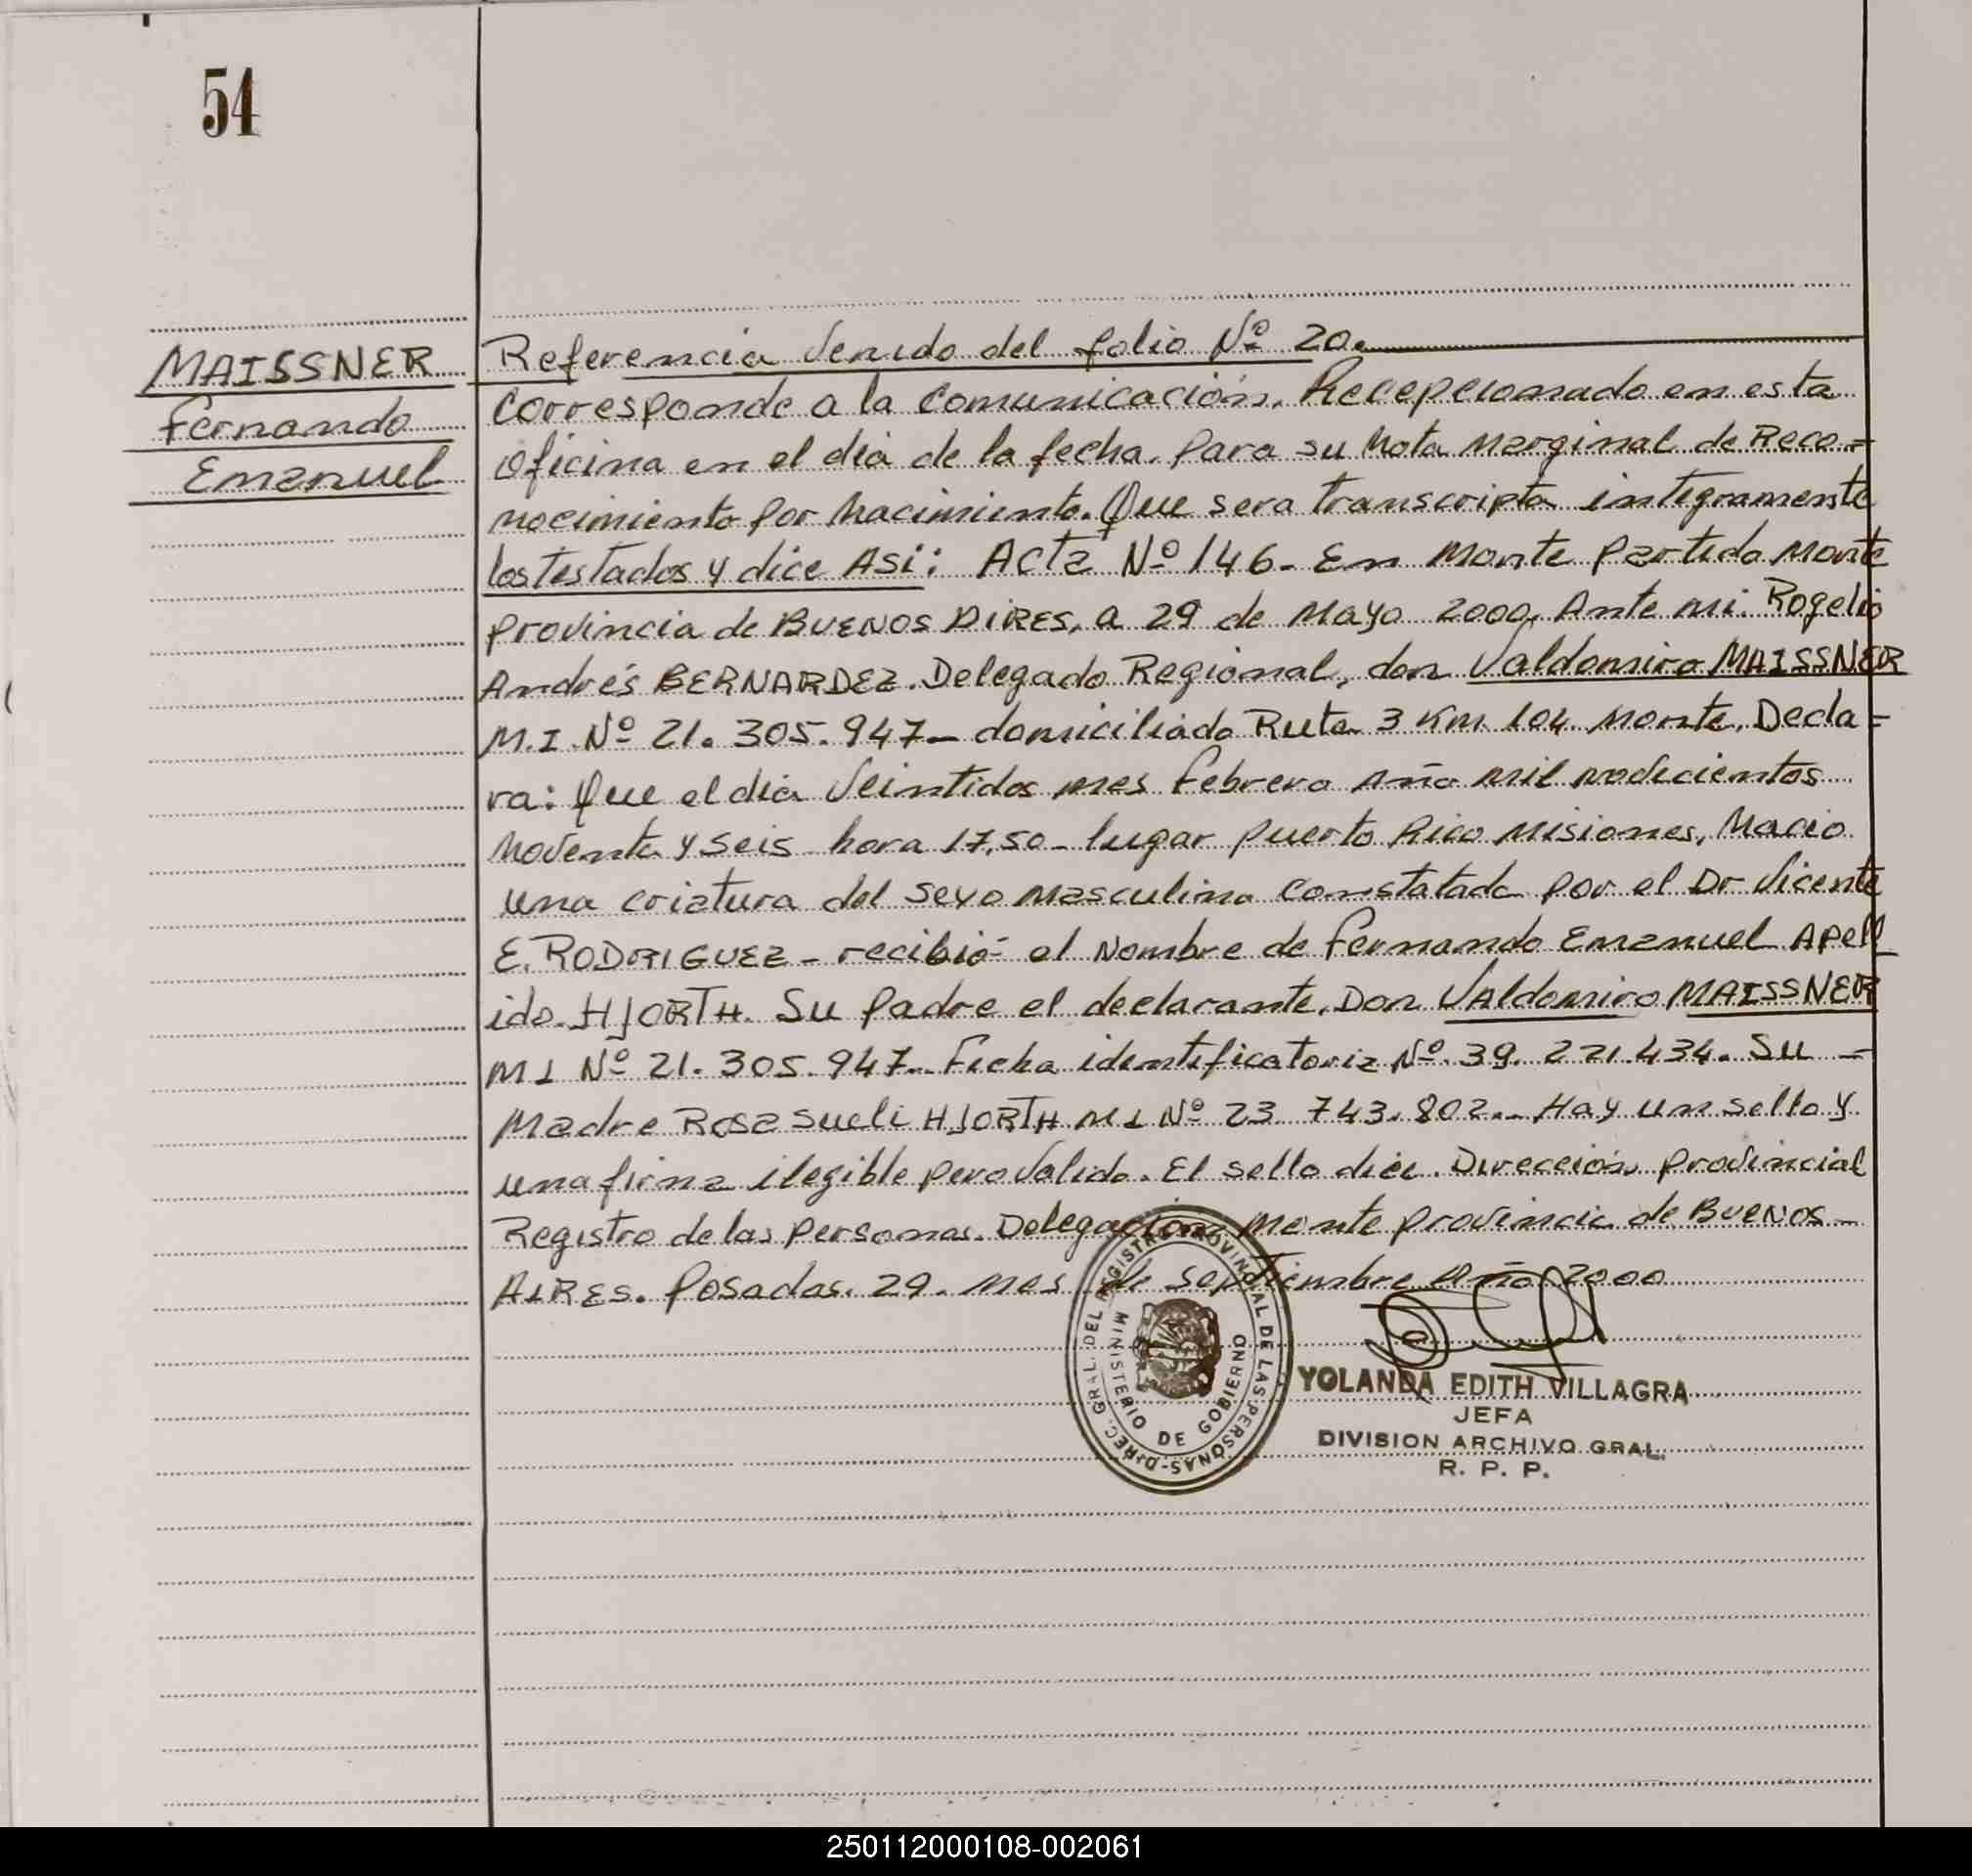 54
MAISSNER
Fernando
Emanuel
Referencia Venido del folio Nº 20.
Corresponde a la Comunicación. Recepcionado en esta
Oficina en el dia de la fecha. Para su Nota Marginal de Reco=
nocimiento por Nacimiento. Que sera transcripta integramente
los testados y dice Asi: Acta Nº 146- En Monte Partido Monte
Provincia de BUENOS AIRES, a 29 de Mayo 2000. Ante mi. Rogelio
Andrés BERNARDEZ. Delegado Regional, don Valdomiro MAISSNER
M.I. Nº 21.305.947- domiciliado Ruta 3 Km 104 Monte, Decla=
ra: Que el dia Veintidos mes Febrero Año Mil nodecientos
Noventa y Seis hora 17,50- lugar Puerto Rico Misiones, Nacio
una criatura del sexo Masculino Constatado por el Dr Vicente
E. RODRIGUEZ - recibió el Nombre de Fernando Emanuel Apell
ido. HJORTH. Su Padre el declarante, Don VAldomiro MAISSNER
MI Nº 21.305.947. Ficha identificatoria Nº 39.221.434. Su -
Madre Rosa Sueli HJORTH MI Nº 23 743.802.- Hay un sello y
una firma ilegible pero Valido. El sello dice. Dirección Provincial
Registro de las Personas. Delegación Monte Provincia de BUENOS-
AIRES. Posadas. 29. mes de Septiembre Año 2000
DIREC. GRAL. DEL REGISTRO PROVINCIAL DE LAS PERSONAS-
MINISTERIO DE GOBIERNO
YOLANDA EDITH VILLAGRA
JEFA
DIVISION ARCHIVO GRAL.
R. P. P.
250112000108-002061